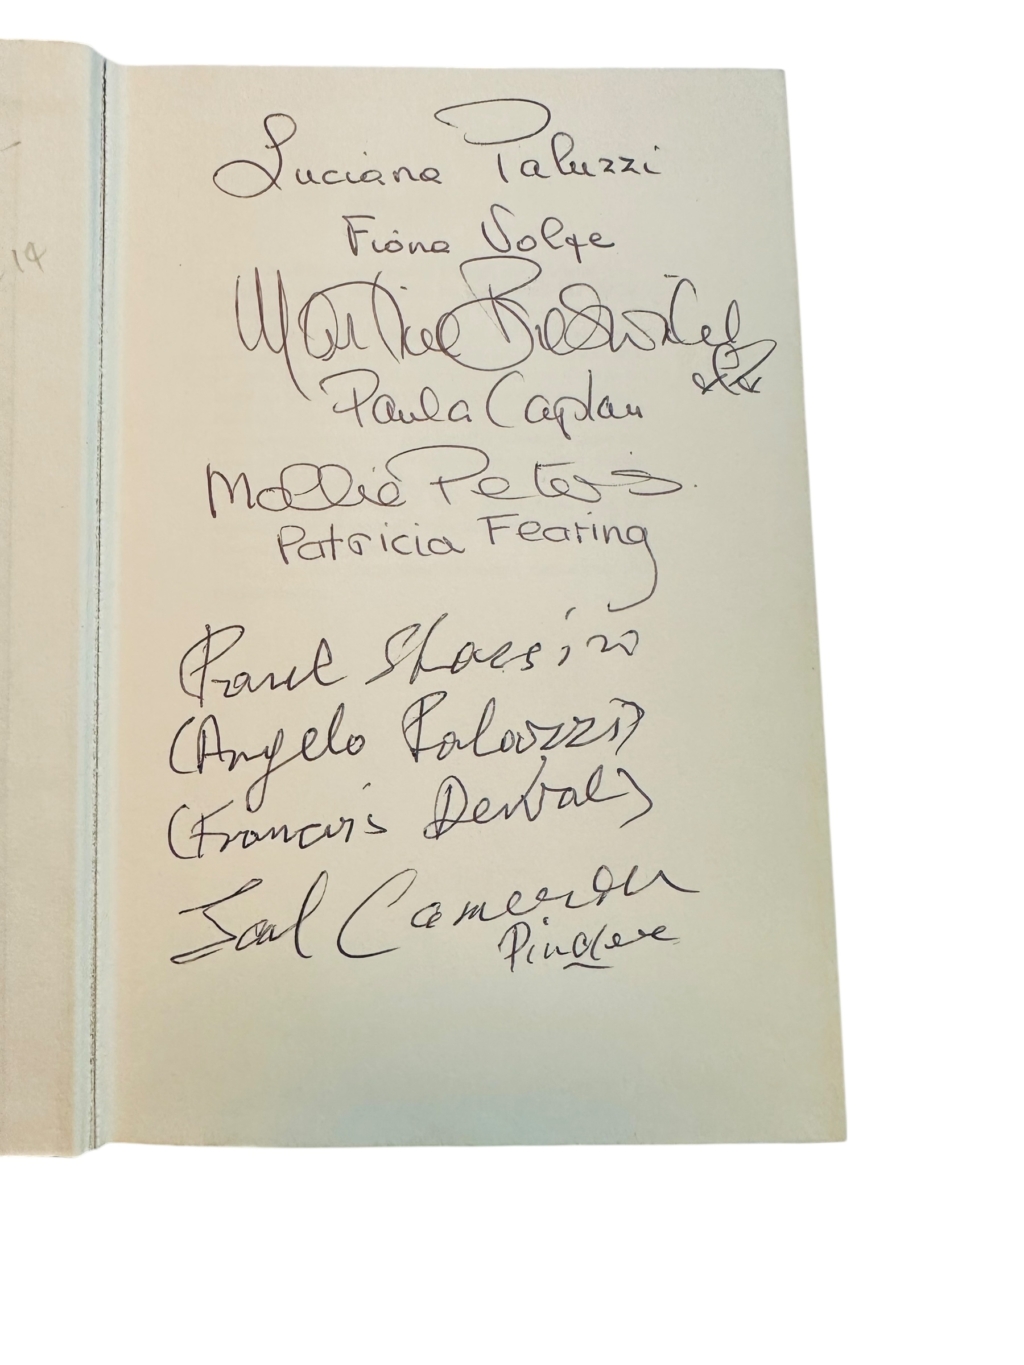 Luciana Paluzzi
Fiona Volpe
Martine Beswick
Paula Caplan
Mollie Peters
Patricia Fearing
Paul Stassino
(Angelo Palazzi)
(Francois Derval)
Earl Cameron
Pinder
14